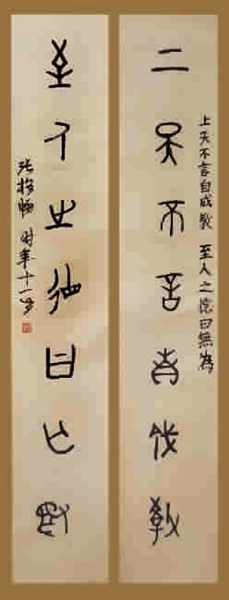 上天不言自成教 至人之德曰無為
上天不言自成教
至人之德曰無為
张梓畅 时年十一岁